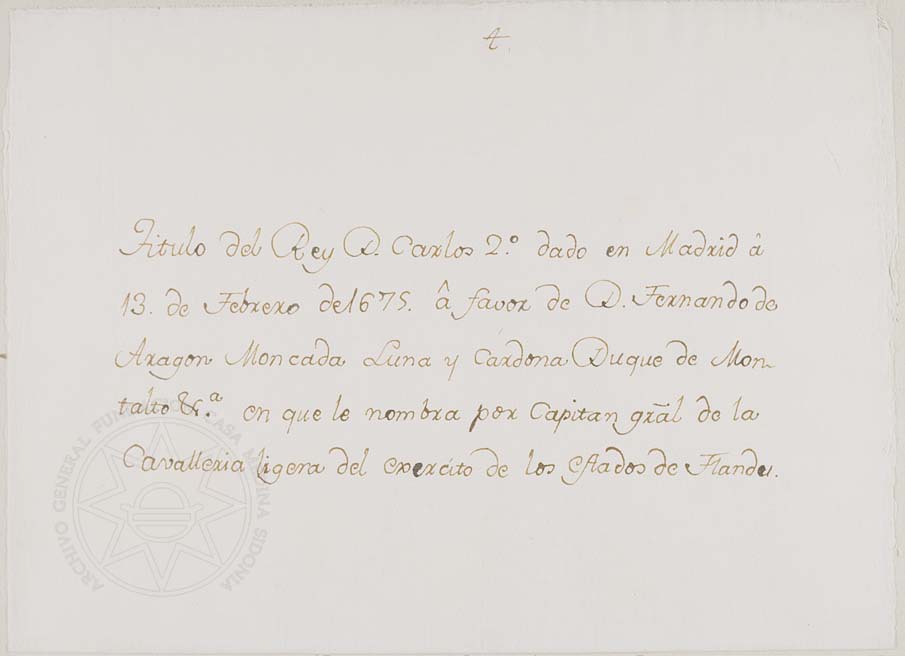 4.
Titulo del Rey D. Carlos 2.º dado en Madrid â
13. de Febrero de 1675. â favor de D. Fernando de
Aragon Moncada Luna y Cardona Duque de Mon-
talto &.ª en que le nombra por Capitan grãl de la
Cavalleria ligera del exercito de los estados de Flandes.
ARCHIVO GENERAL FUNDACIÓN CASA MEDINA SIDONIA